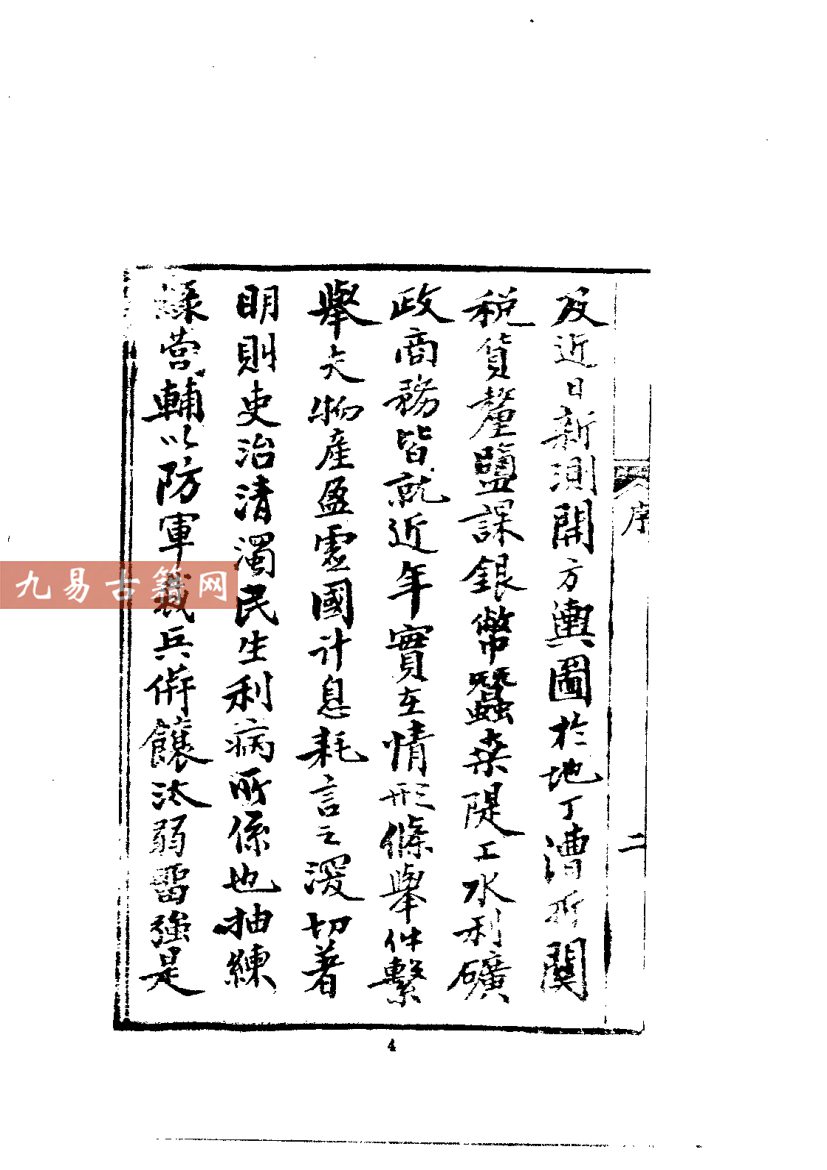 及近日新測開方輿圖於地丁漕折關
稅貨釐鹽課銀幣蠶桑隄工水利礦
政商務皆就近年實在情形條舉件繫
舉夫物產盈虛國計息耗言之深切著
明則吏治清濁民生利病所係也抽練
綠營輔以防軍裁兵併餉汰弱留強是
序
二
九易古籍网
4